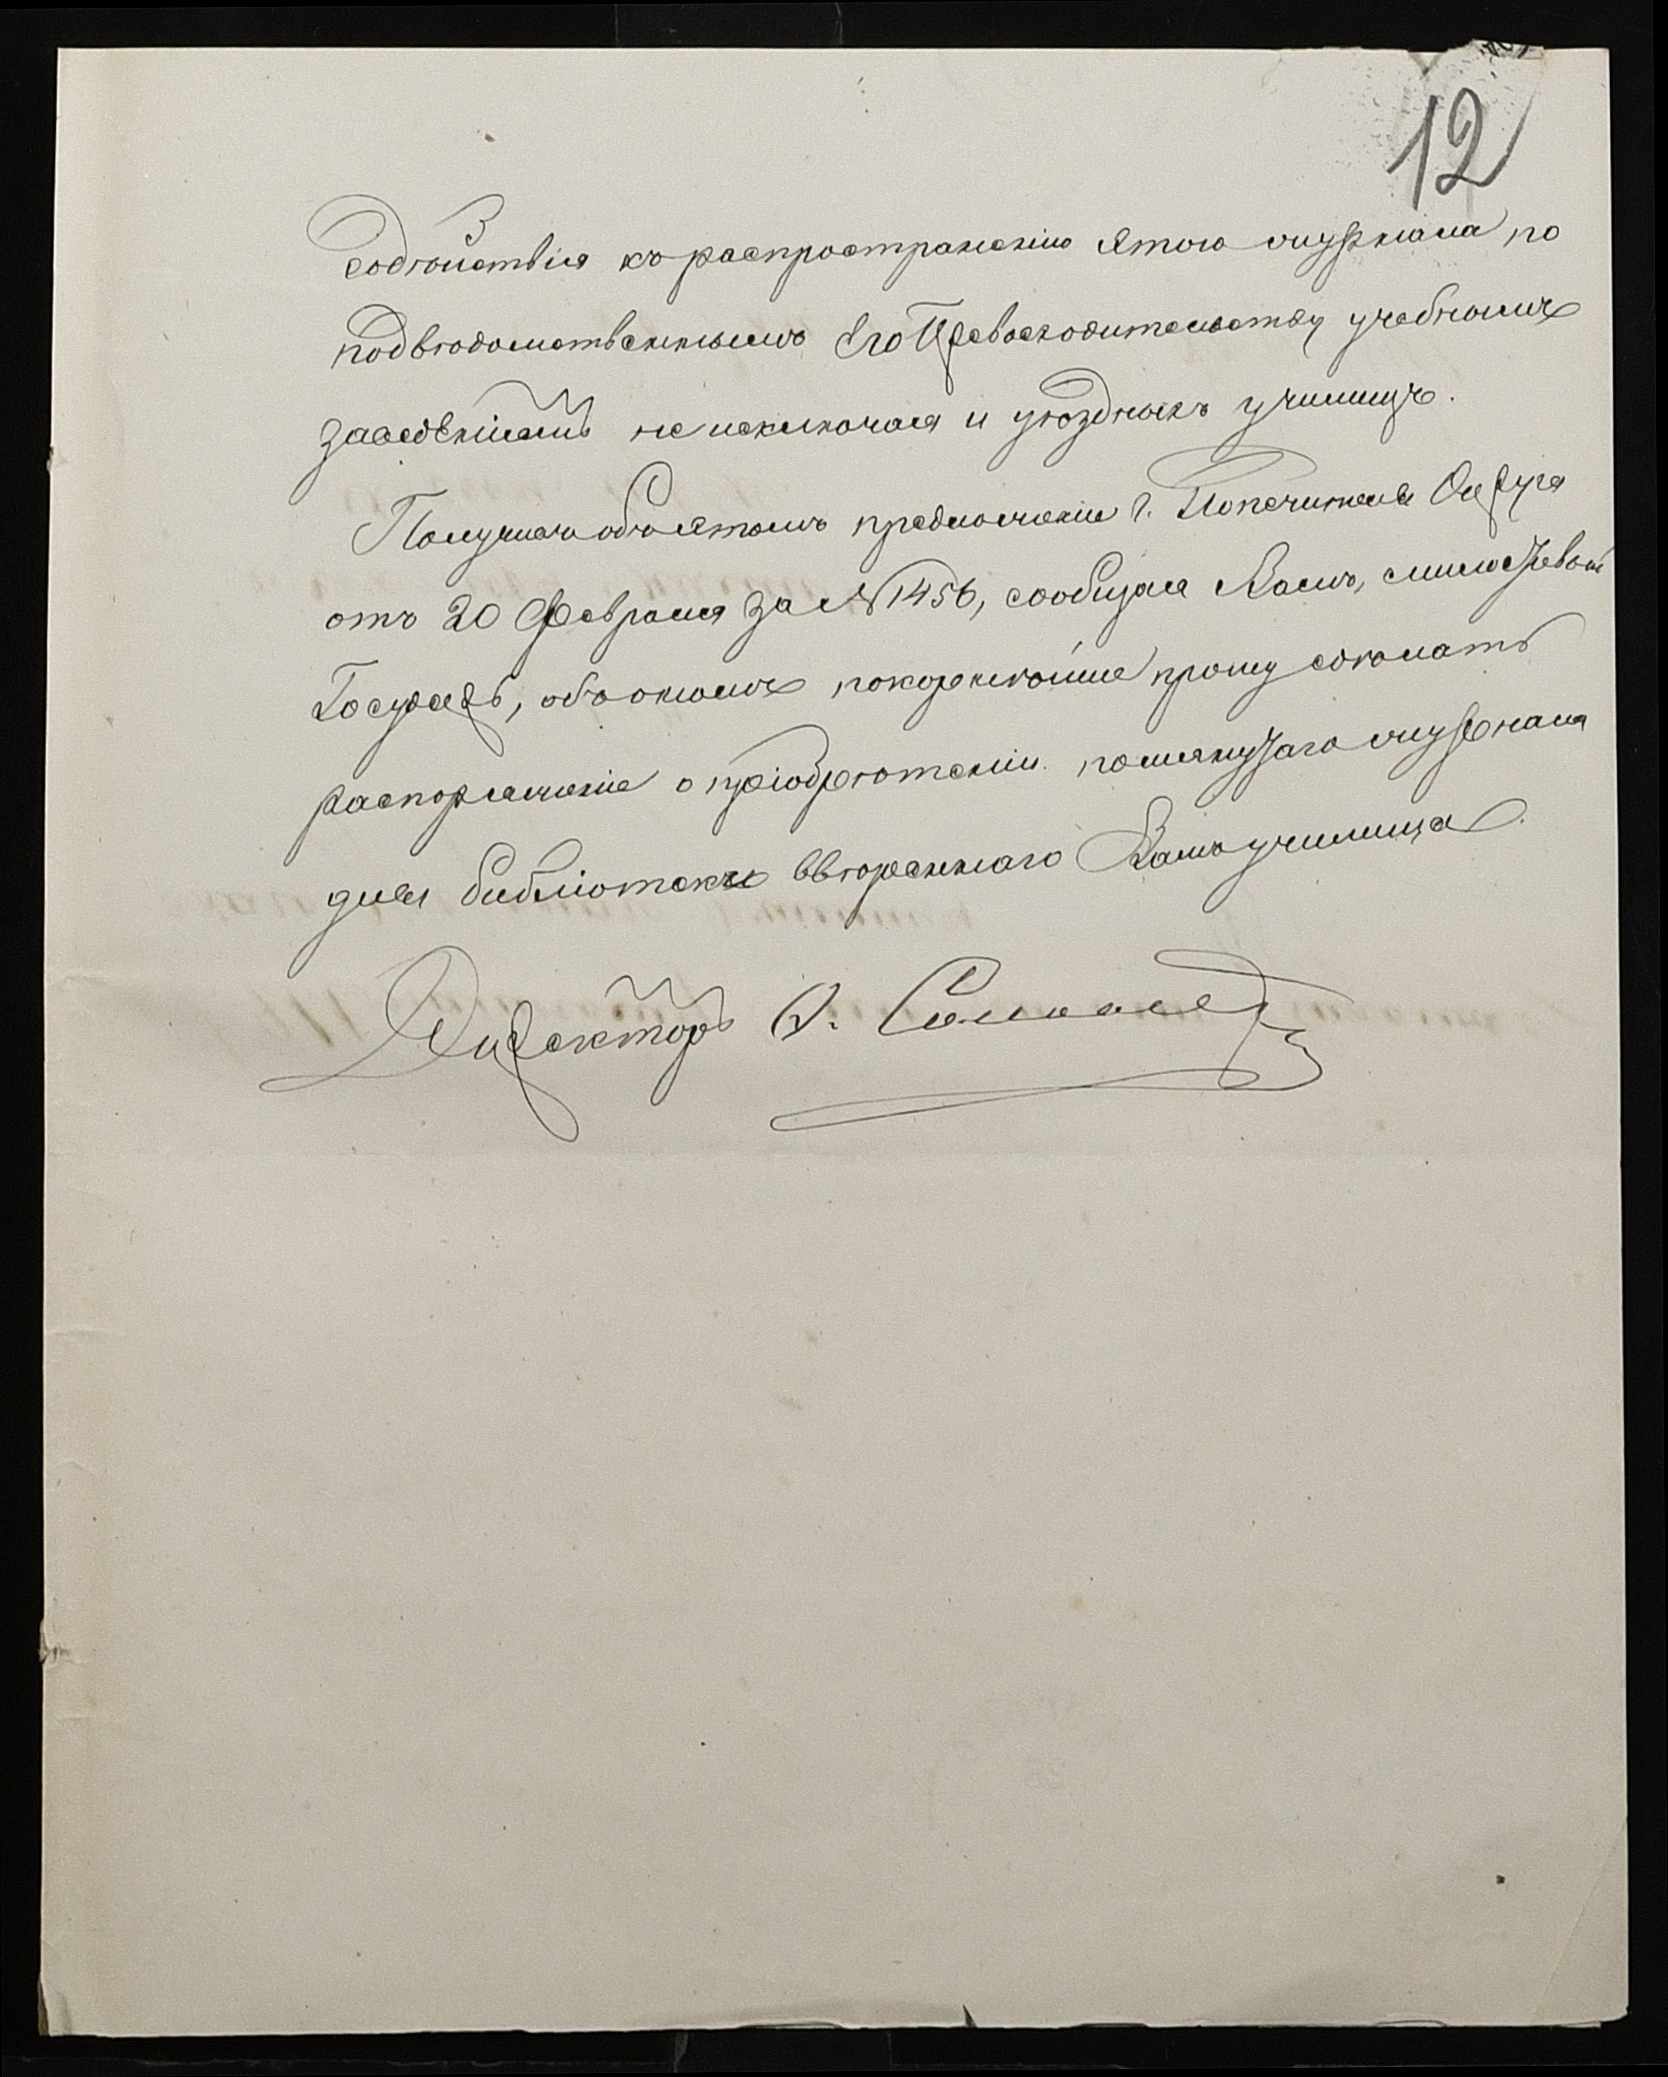 12
содѣйствія къ распространенію этого журнала по
подвѣдомственнымъ Его Превосходительству учебнымъ
заведеніямъ не исключая и уѣздныхъ училищъ.
Получивъ объ этомъ предложеніе г. Попечителя Округа
отъ 20 Февраля за № 1456, сообщая Вамъ, милостивый
Государь, объ ономъ покорнѣйше прошу сдѣлать
распоряженіе о пріобрѣтеніи помянутаго журнала
для библіотеки ввѣреннаго Вамъ училища.
Директоръ